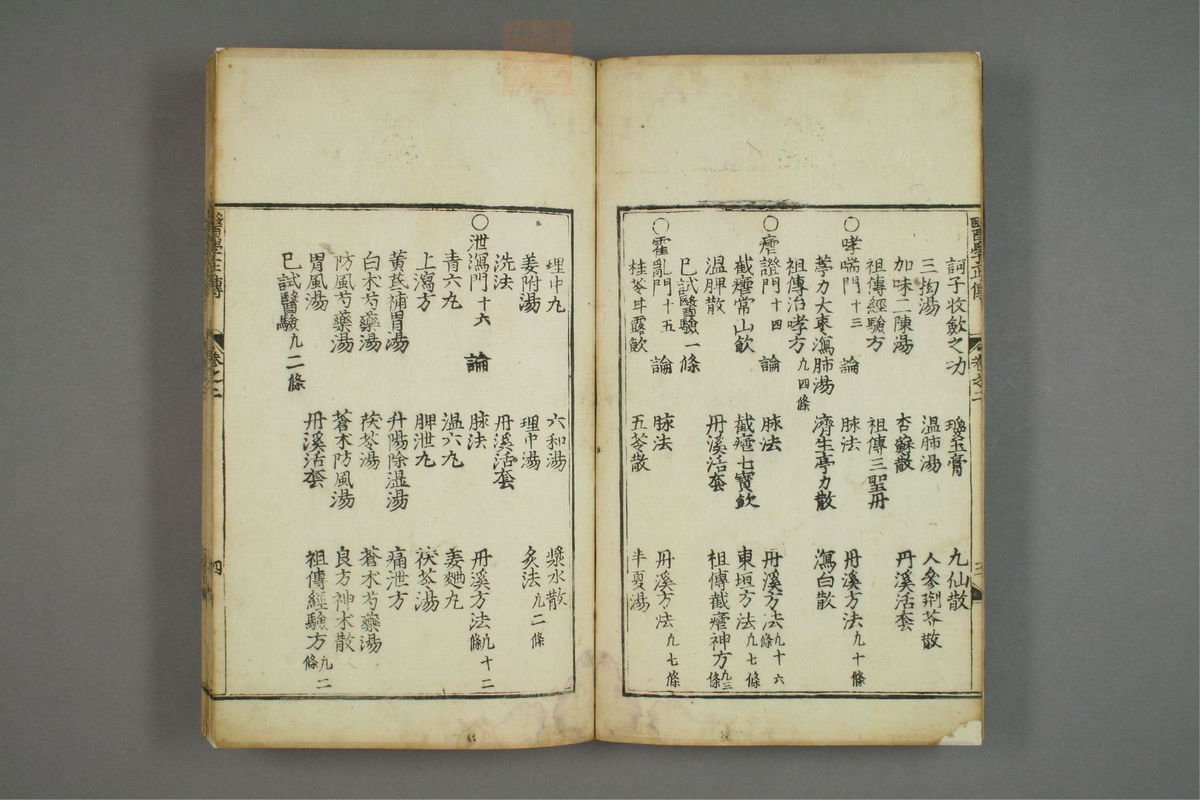 訶子收歛之功 瓊玉膏 九仙散
三拗湯 温肺湯 人參荊芥散
加味二陳湯 杏蘇散 丹溪活套
祖傳經驗方 祖傳三聖丹
○哮喘門十三 論 脉法 丹溪方法凡十條
葶力大棗瀉肺湯 濟生葶力散 瀉白散
祖傳治哮方凡四條
○瘧證門十四 論 脉法 丹溪方法凡十六條
截瘧常山飲 截瘧七寶飲 東垣方法凡七條
温脾散 丹溪活套 祖傳截瘧神方凡三條
已試醫驗一條
○霍亂門十五 論 脉法 丹溪方法凡七條
桂苓甘露飲 五苓散 半夏湯
理中丸 六和湯 漿水散
姜附湯 理中湯 炙法凡二條
洗法 丹溪活套
○泄瀉門十六 論 脉法 丹溪方法凡十二條
青六丸 温六丸 姜麯丸
上瀉方 脾泄丸 茯苓湯
黄芪補胃湯 升陽除濕湯 痛泄方
白朮芍藥湯 茯苓湯 蒼朮芍藥湯
防風芍藥湯 蒼朮防風湯 良方神朮散
胃風湯 丹溪活套 祖傳經驗方凡二條
已試醫驗凡二條
醫學正傳 卷之二
醫學正傳 卷之二 四